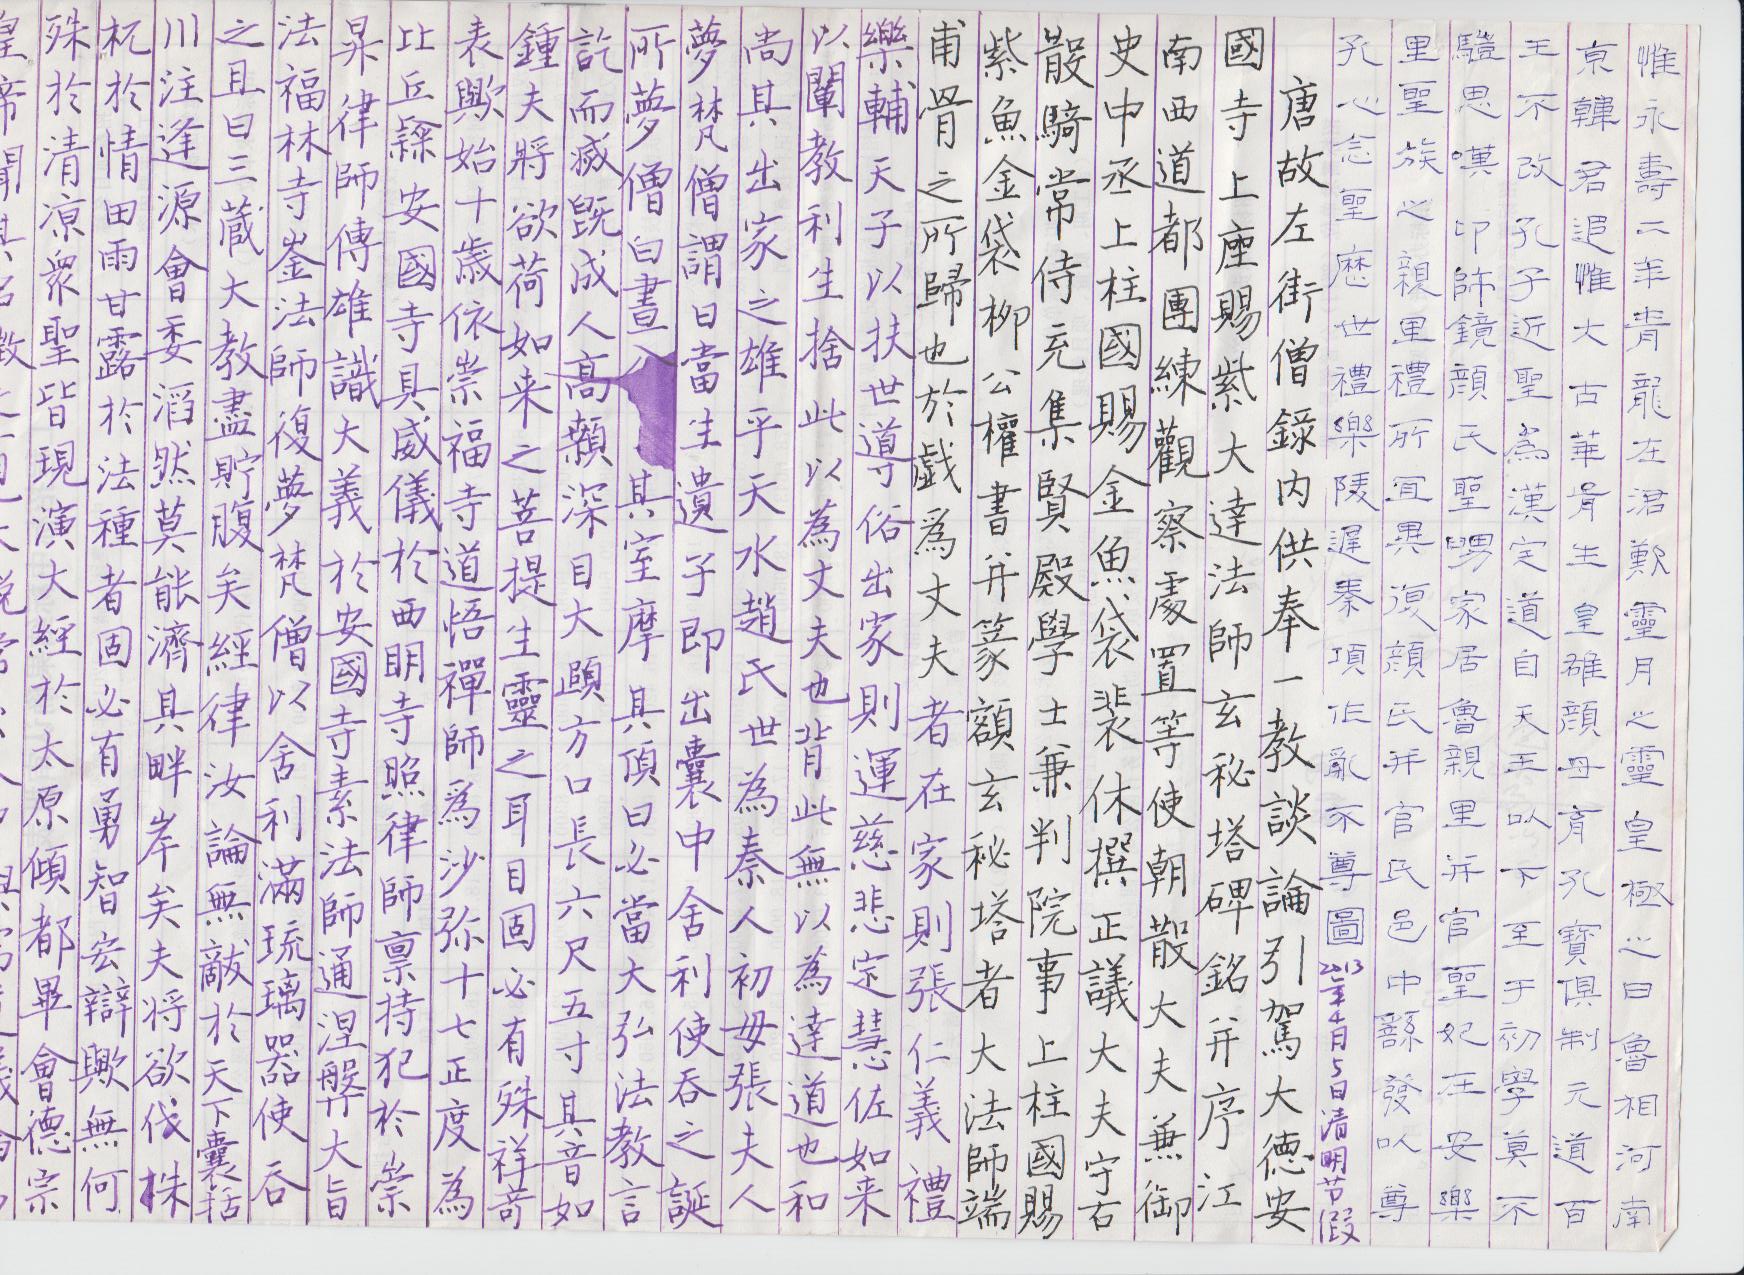 惟永壽二年青龍在涒歎霊月之靈皇極之日魯相河南
京韓君追惟大古華胥生皇雄顏母育孔寶俱制元道百
王不改孔子近聖為漢定道自天王以下至于初學莫不
驥思嘆卬師鏡顏氏聖舅家居魯親里并官聖妃在安樂
里聖族之親里禮所宜異復顏氏并官氏邑中繇發以尊
孔心念聖歷世禮樂陵遲秦項作亂不尊圖
2013年4月5日清明节假
唐故左街僧錄內供奉一教談論引駕大德安
國寺上座賜紫大達法師玄秘塔碑銘并序江
南西道都團練觀察處置等使朝散大夫兼御
史中丞上柱國賜金魚袋裴休撰正議大夫守右
散騎常侍充集賢殿學士兼判院事上柱國賜
紫魚金袋柳公權書并篆額玄秘塔者大法師端
甫骨之所歸也於戲為丈夫者在家則張仁義禮
樂輔天子以扶世導俗出家則運慈悲定慧佐如来
以闡教利生捨此以為丈夫也背此無以為達道也和
尚其出家之雄乎天水趙氏世為秦人初毋張夫人
夢梵僧謂曰當生遺子即出囊中舍利使吞之誕
所夢僧白晝入其室摩其頂曰必當大弘法教言
訖而滅既成人高顙深目大頤方口長六尺五寸其音如
鍾夫將欲荷如来之菩提生靈之耳目固必有殊祥奇
表歟始十歲依崇福寺道悟禪師為沙弥十七正度為
比丘隸安國寺具威儀於西明寺照律師禀持犯於崇
昇律師傳雄識大義於安國寺素法師通涅槃大旨
法福林寺崟法師復夢梵僧以舍利滿琉璃器使吞
之且曰三藏大教盡貯腹矣經律汝論無敵於天下囊括
川注逢源會委滔然莫能濟其畔岸矣夫将欲伐株
杌於情田雨甘露於法種者固必有勇智宏辯歟無何
殊於清凉眾聖皆現演大經於太原傾都畢會德宗
皇帝聞其名徵之